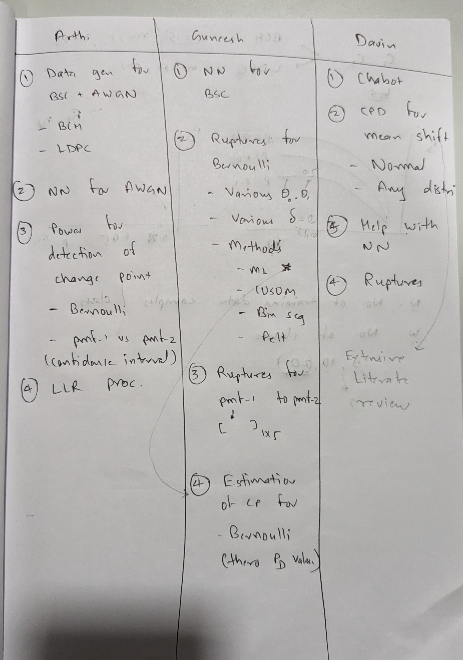 Arthi
① Data gen for
BSC + AWGN
- BCH
- LDPC
② NN for AWGN
③ Power for
detection of
change point
- Bernoulli
- pmf-1 vs pmf-2
(confidance interval)
④ LLR proc.
Guneesh
① NN for
BSC
② Ruptures for
Bernoulli
- Various θ₀, θ₁
- Various δ
- Methods
- ML *
- CUSUM
- Bin seg
- Pelt
③ Ruptures for
pmf-1 to pmf-2
[ ]1x5
④ Estimation
of CP for
- Bernoulli
(thero PD value)
Davin
① Chabot
② CPD for
mean shift
- Normal
- Any distri
③ Help with
NN
④ Ruptures
Extensive
Literate
review